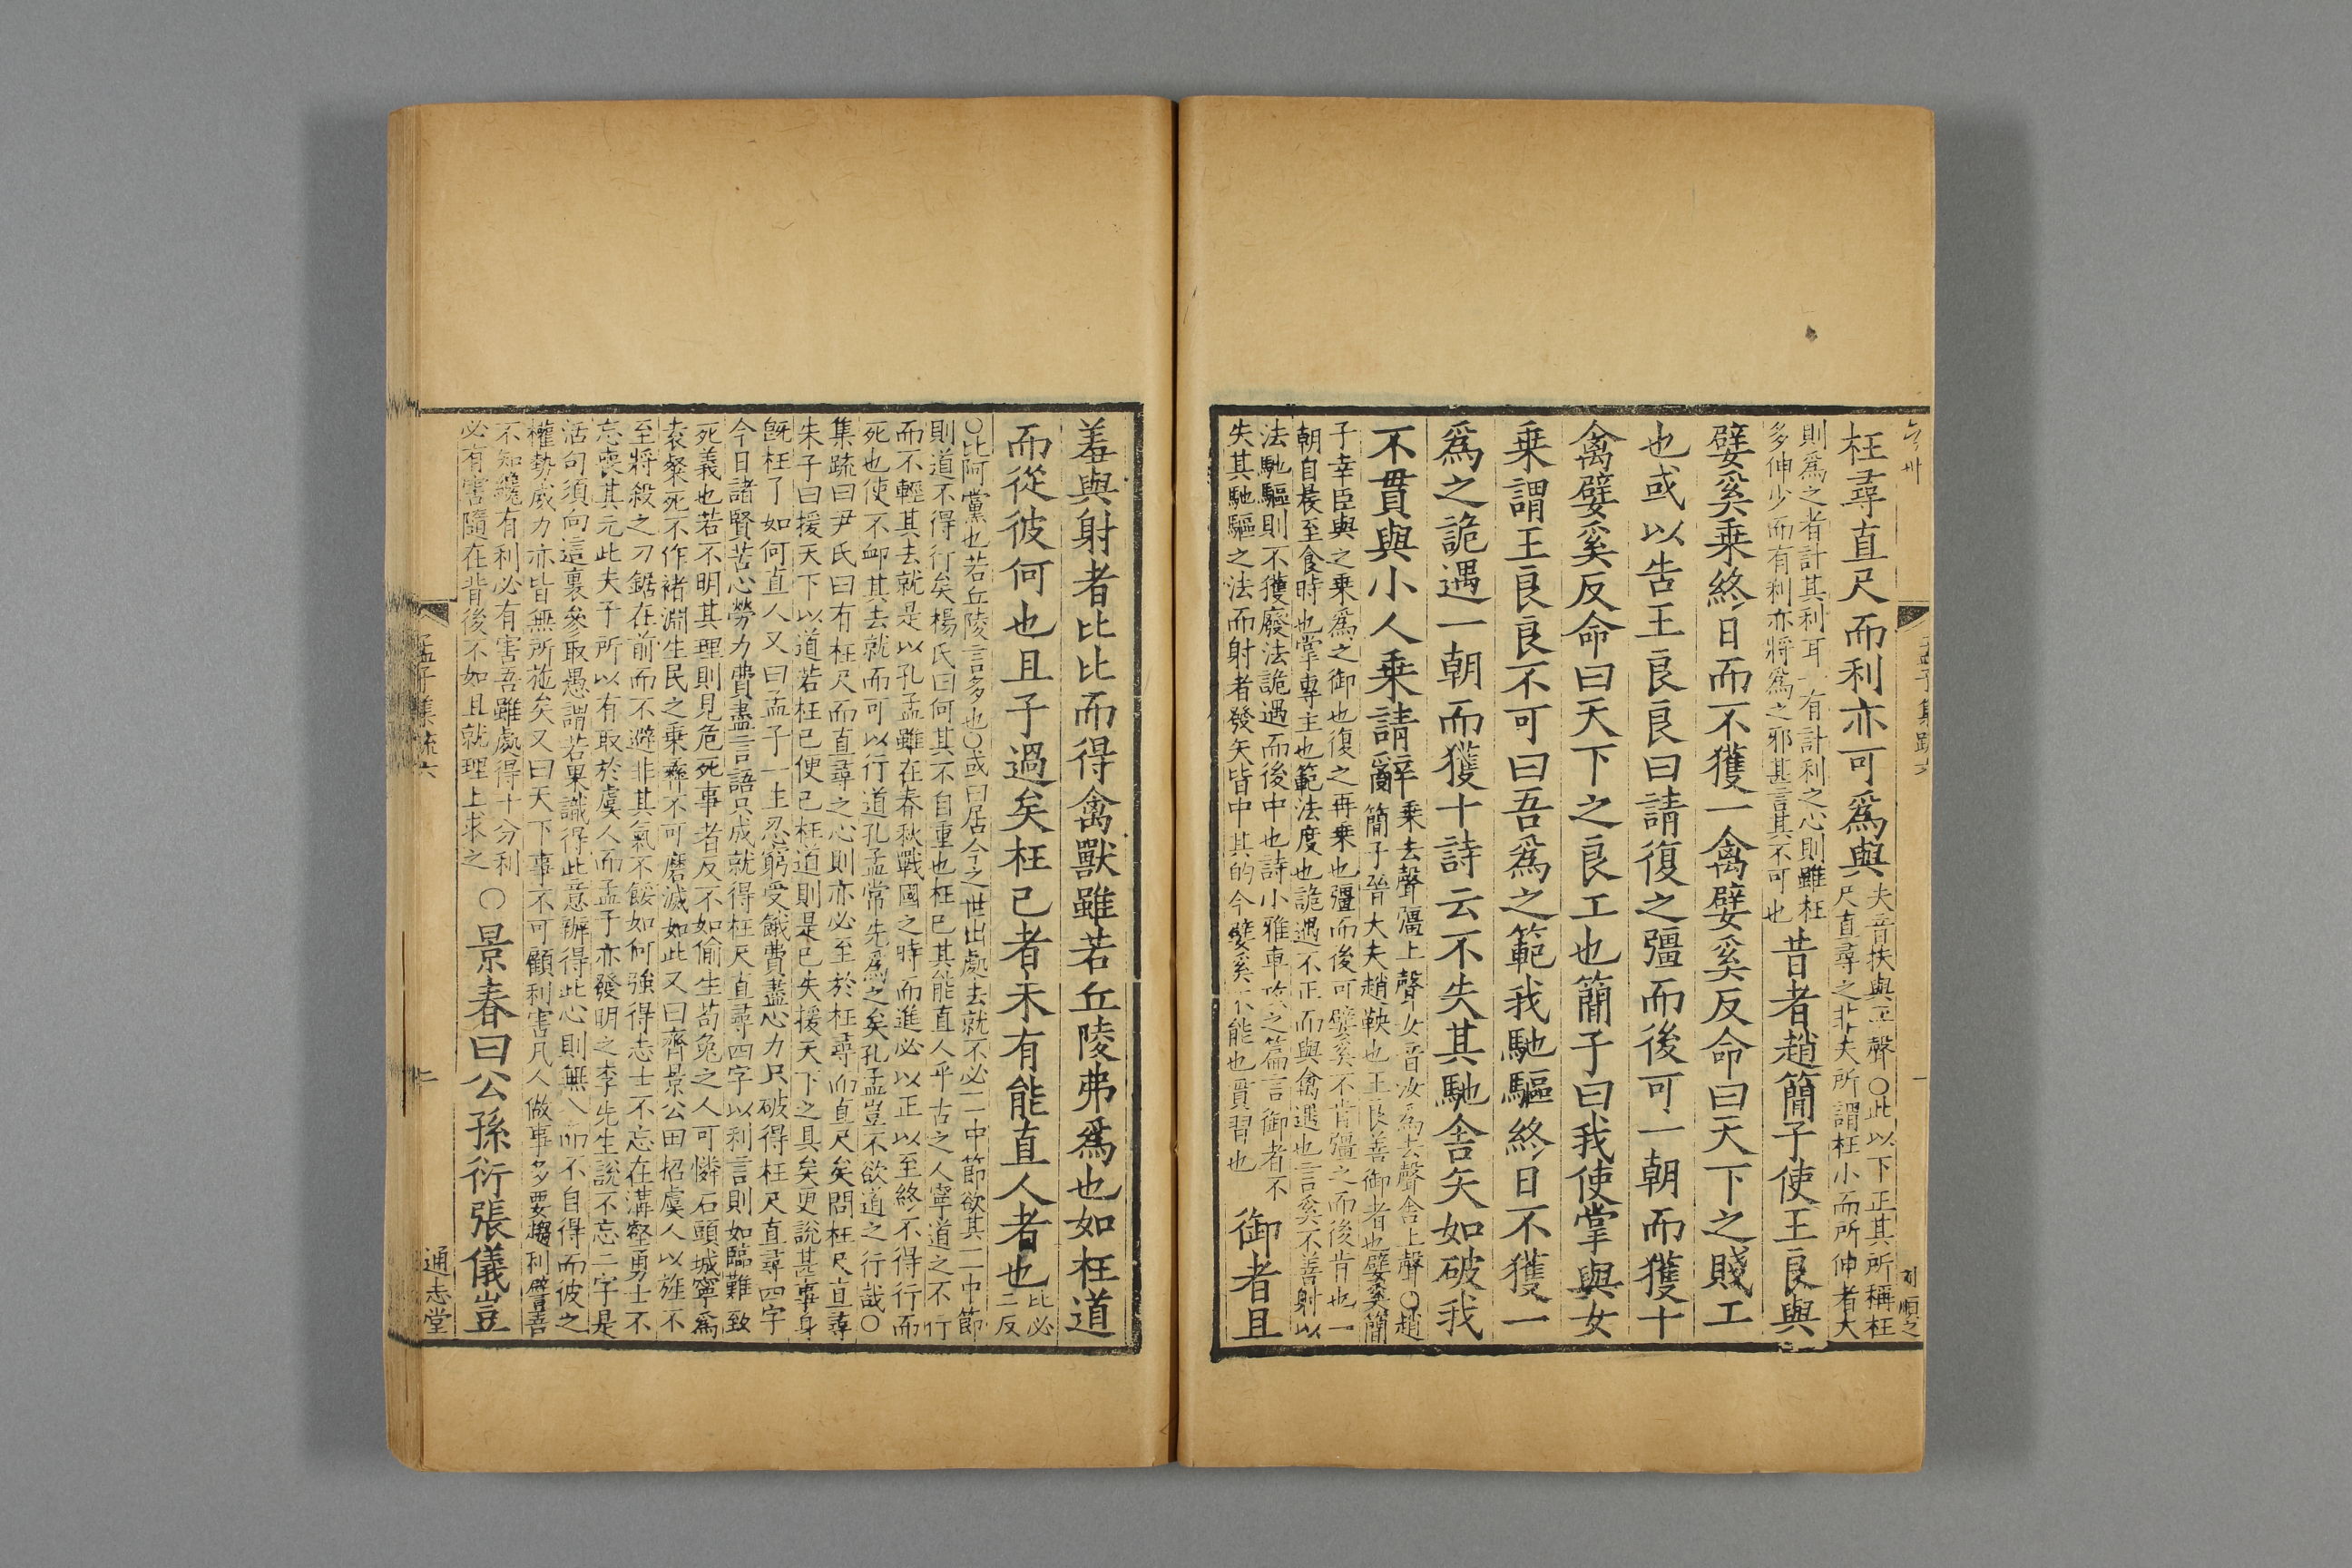 枉尋直尺而利亦可爲與夫音扶與平聲○此以下正其所稱枉
尺直尋之非夫所謂枉小而所伸者大
則爲之者計其利耳一有計利之心則雖枉
多伸少而有利亦將爲之邪甚言其不可也昔者趙簡子使王良與
嬖奚乗終日而不獲一禽嬖奚反命曰天下之賤工
也或以告王良良曰請復之彊而後可一朝而獲十
禽嬖奚反命曰天下之良工也簡子曰我使掌與女
乗謂王良良不可曰吾爲之範我馳驅終日不獲一
爲之詭遇一朝而獲十詩云不失其馳舍矢如破我
不貫與小人乗請辭乗去聲彊上聲女音汝爲去聲舍上聲○趙
簡子晉大夫趙鞅也王良善御者也嬖奚簡
子幸臣與之乗爲之御也復之再乗也彊而後可嬖奚不肯彊之而後肯也一
朝自晨至食時也掌專主也範法度也詭遇不正而與禽遇也言奚不善射以
法馳驅則不獲廢法詭遇而後中也詩小雅車攻之篇言御者不
失其馳驅之法而射者發矢皆中其的今嬖奚不能也貫習也御者且
羞與射者比比而得禽獸雖若丘陵弗爲也如枉道
而從彼何也且子過矣枉己者未有能直人者也比必
二反
○比阿黨也若丘陵言多也○或曰居今之世出處去就不必一一中節欲其一一中節
則道不得行矣楊氏曰何其不自重也枉己其能直人乎古之人寧道之不行
而不輕其去就是以孔孟雖在春秋戰國之時而進必以正以至終不得行而
死也使不卹其去就而可以行道孔孟當先爲之矣孔孟豈不欲道之行哉○
集疏曰尹氏曰有枉尺而直尋之心則亦必至於枉尋而直尺矣問枉尺直尋
朱子曰援天下以道若枉已便已枉道則是已失援天下之具矣更說甚事身
旣枉了如何直人又曰孟子一生忍窮受餓費盡心力只破得枉尺直尋四字
今日諸賢苦心勞力費盡言語只成就得枉尺直尋四字以利言則如臨難致
死義也若不明其理則見危死事者反不如偷生苟免之人可憐石頭城寧爲
袁粲死不作褚淵生民之秉彝不可磨滅如此又曰齊景公田招虞人以旌不
至將殺之刀鋸在前而不避非其氣不餒如何強得志士不忘在溝壑勇士不
忘喪其元此夫子所以有取於虞人而孟子亦發明之李先生說不忘二字是
活句須向這裏參取愚謂若果識得此意辦得此心則無入而不自得而彼之
權勢威力亦皆無所施矣又曰天下事不可顧利害凡人做事多要趨利避害
不知纔有利必有害吾雖處得十分利
必有害隨在背後不如且就理上求之○景春曰公孫衍張儀豈
孟子集疏六
通志堂